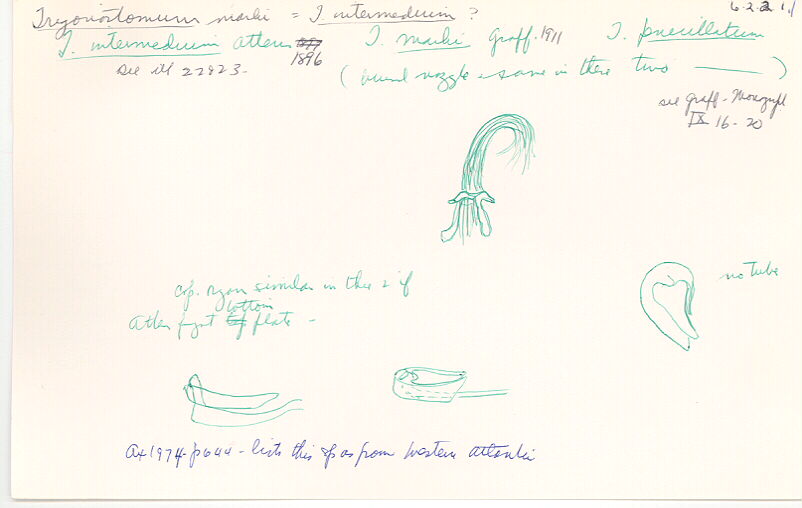 Trigonostomum marki = T. intermedium ?
T. intermedium Attems 1896
T. marki Graff. 1911
T. penicillatum
see ill 22923-
(bursal nozzle - same in these two )
see Graff - Monograph
IX 16-20
cop. organ similar in these 2 if
Attems forgot bottom plate -
no tube
Ax 1974 - p 644 - lists this sp as from Western Atlantic